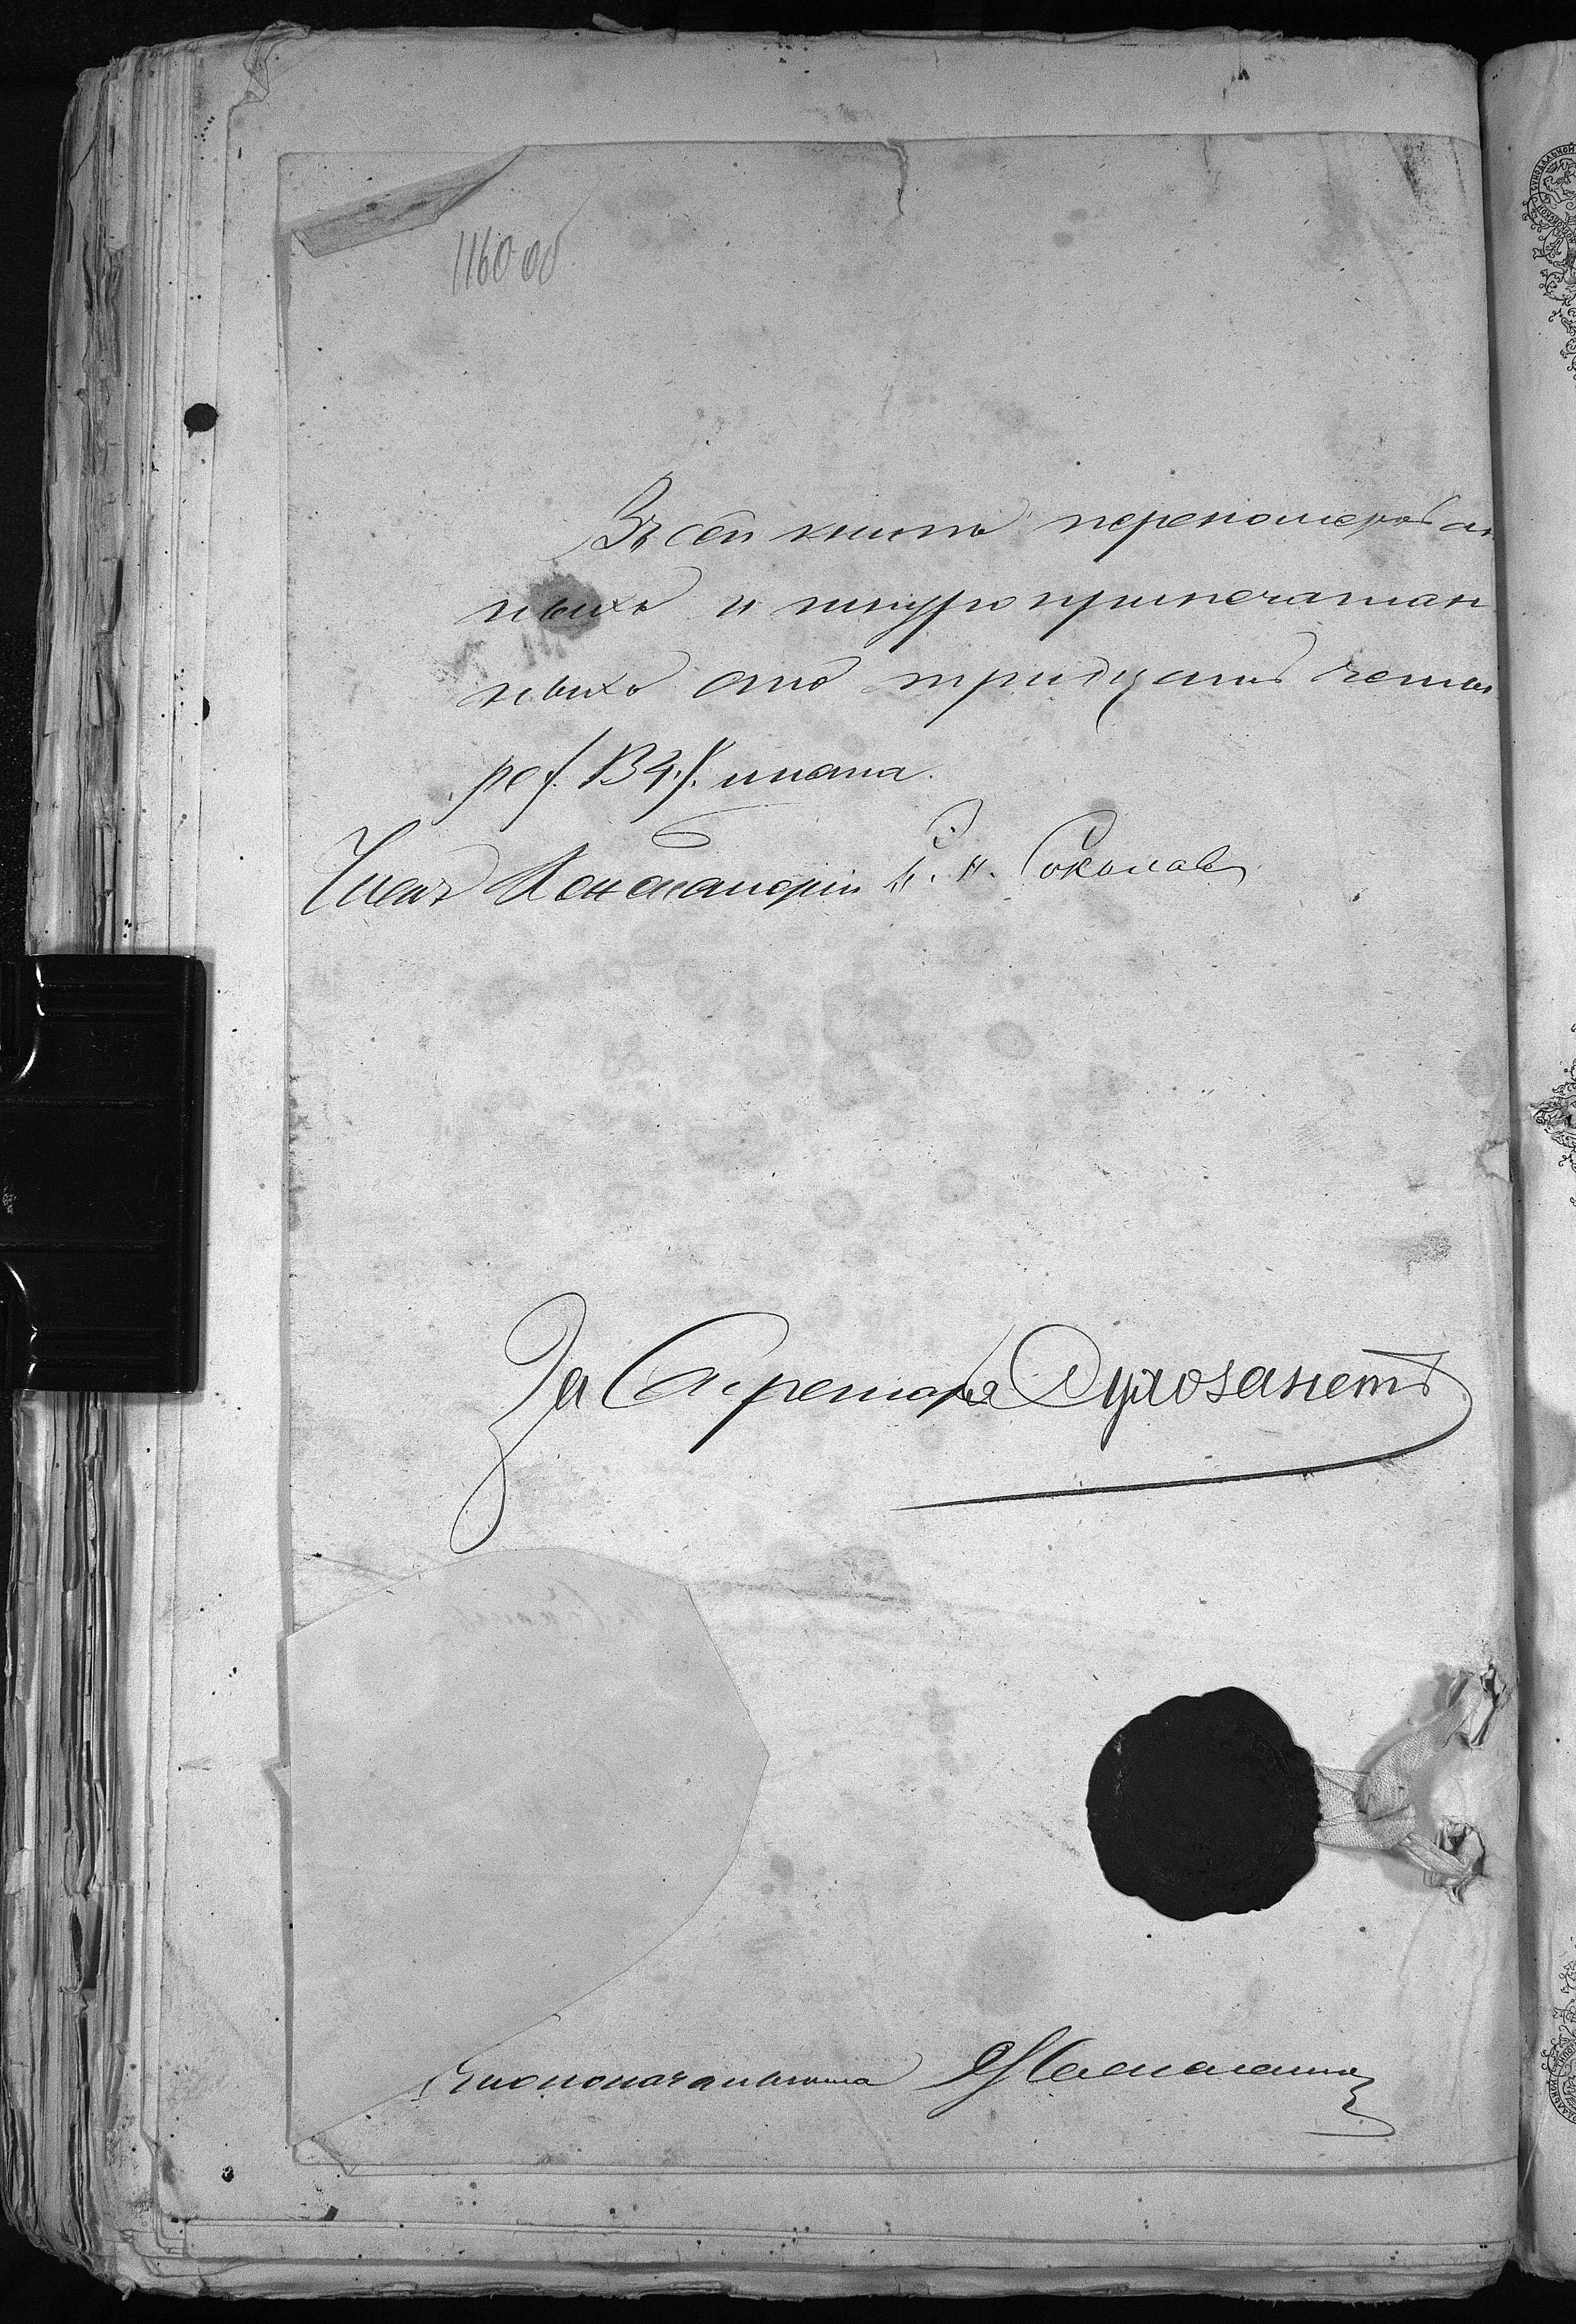 1160 об
Въ сей книгѣ перенумерован
ныхъ и шнуроприпечатан
ныхъ сто тридцать четы
ре /.134./. листа.
Членъ Консисторіи Соколовъ
За Секретаря
Столоначальника